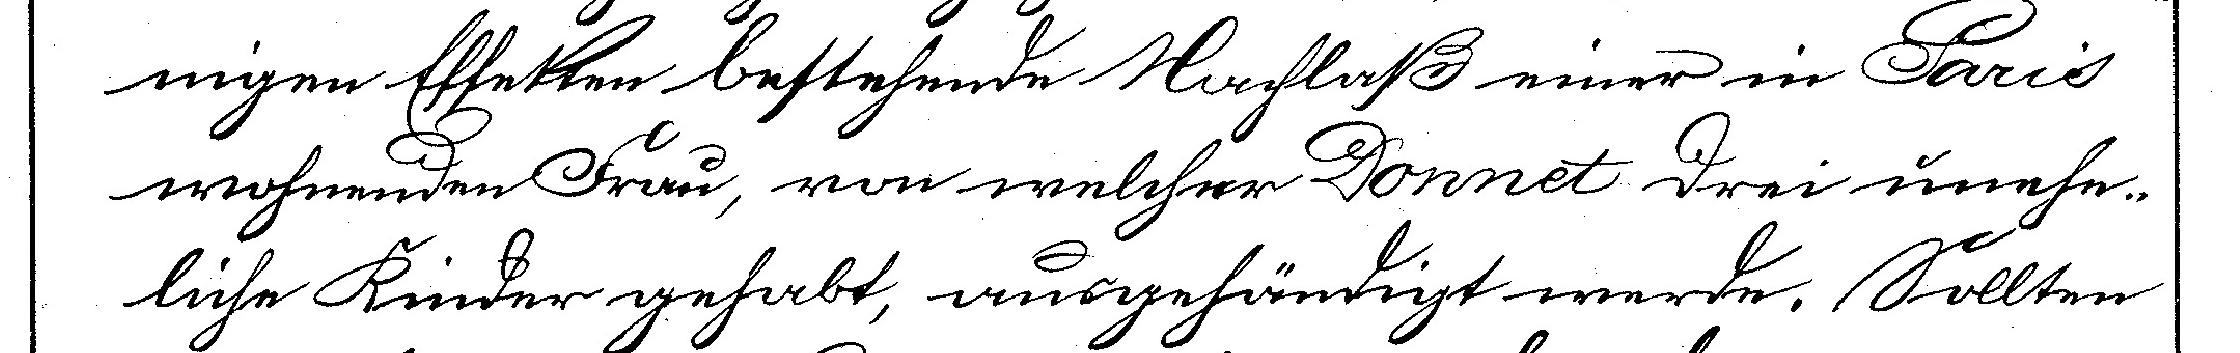 nigen Effekten bestehende Nachlaß einer in Paris
wohnenden Frau, von welcher Donnet drei unehe-
liche Kinder gehabt, ausgehändigt werde. Sollten